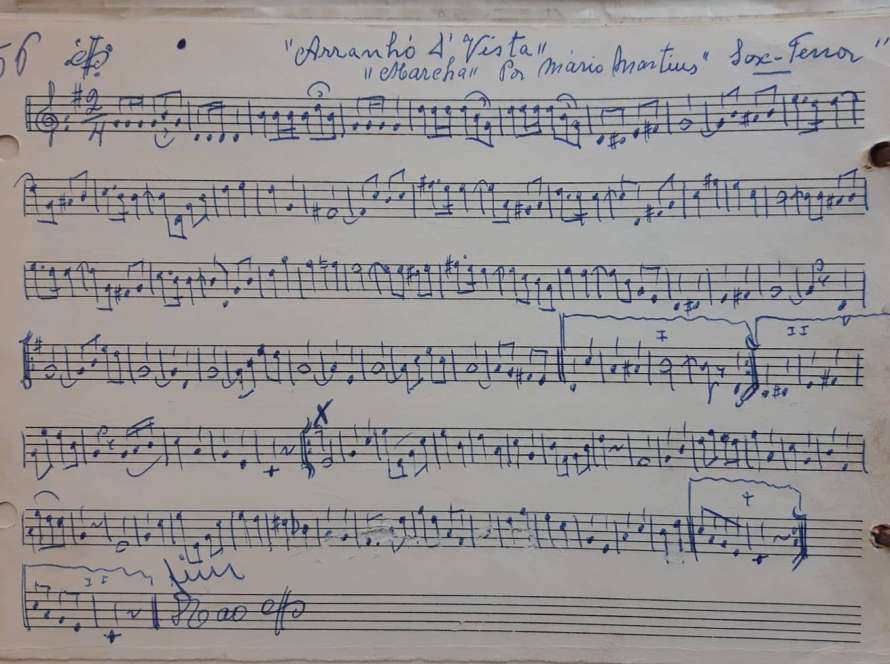 56 "Arranhó á Vista"
"Marcha" Por Mário Martins" Sax-Tenor"
2
4
I
II
X
I
II Fim
ao